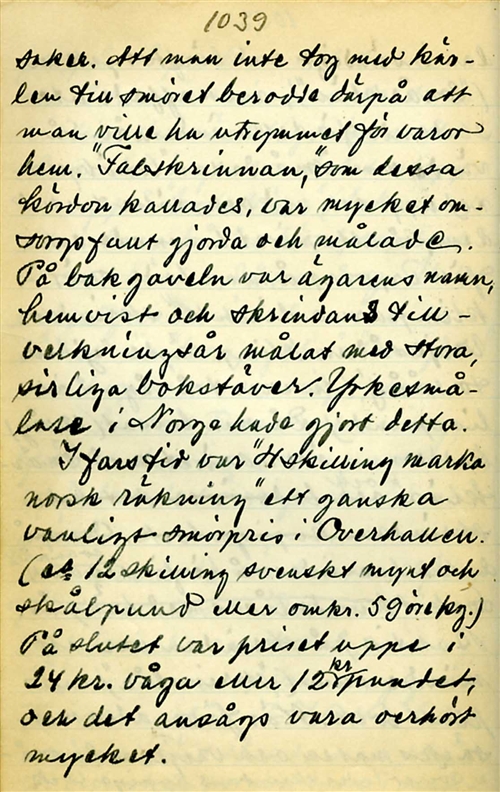 1039
saker. Att man inte tog med kär-
len till smöret berodde därpå att
man ville ha utrymmet för varor
hem. "Fabskrinnan," som dessa
kördon kallades, var mycket om-
sorgsfullt gjorda och målade.
På bakgaveln var ägarens namn,
hemvist och skrindans till-
verkningsår målat med stora,
sirliga bokstäver. Yrkesmå-
lare i Norge hade gjort detta.
I fars tid var "4 skilling marka
norsk räkning" ett ganska
vanligt smörpris i Overhallen.
(ca 12 skilling svenskt mynt och
skålpund eller omkr. 59 öre kg.)
På slutet var priset uppe i
24 kr. våga eller 12 kr pundet,
och det ansågs vara oerhört
mycket.